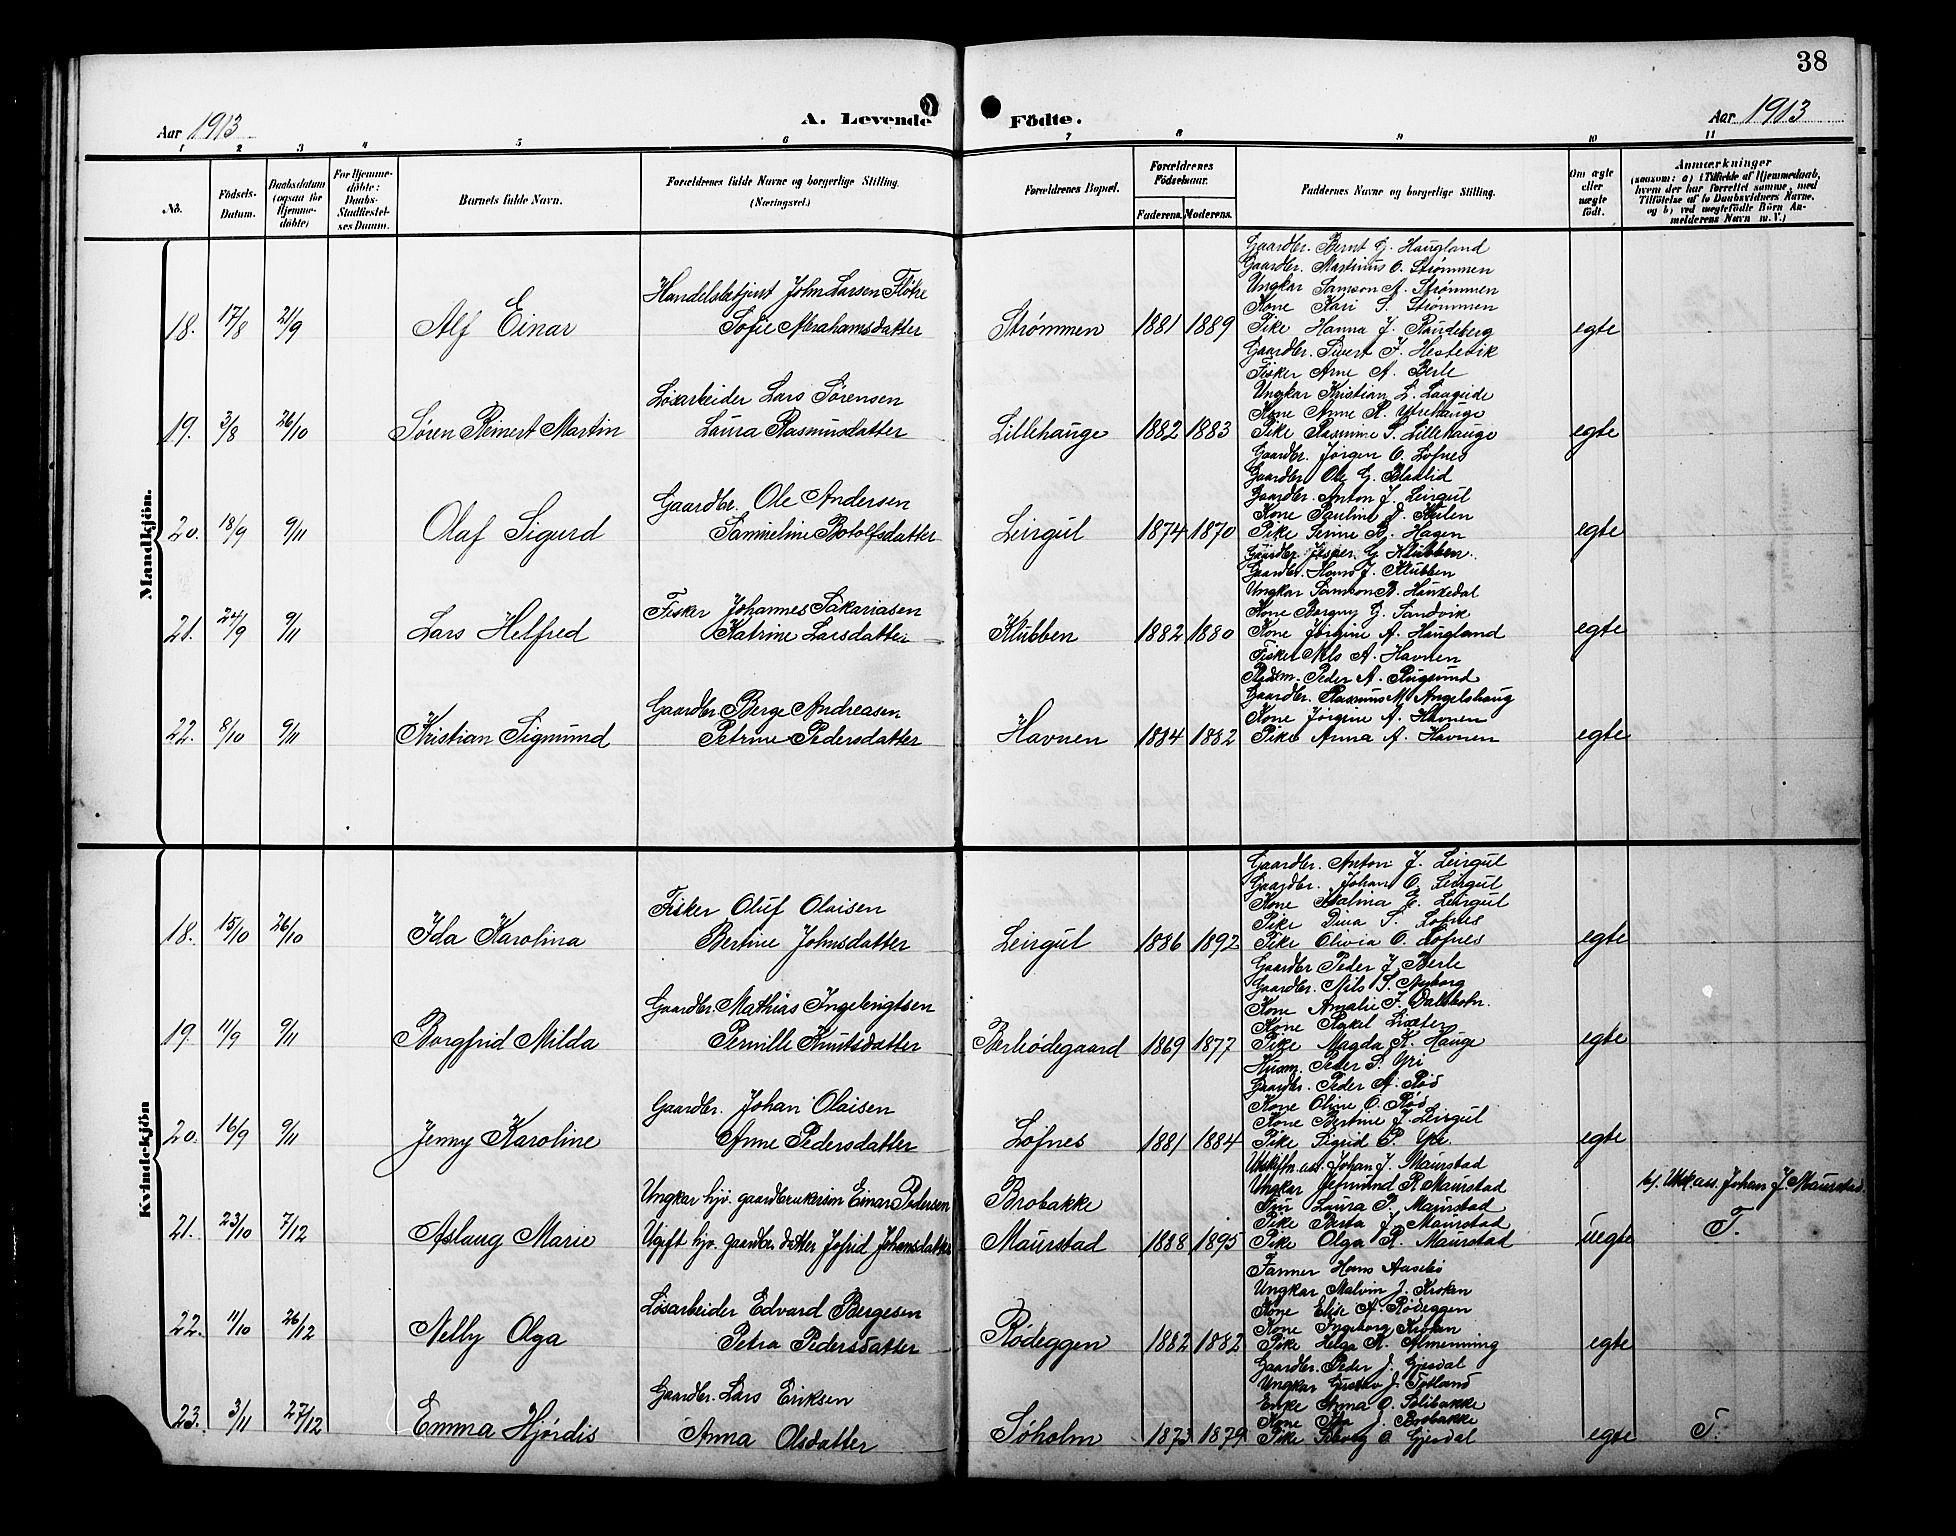 38
Aar 1913
A. Levende Födte.
Aar 1913
1 2 3 4 5 6 7 8 9 10 11
No.
Födsels-Datum.
Daabsdatum (ogsaa for Hjemmedöbte)
For Hjemmedöbte: Daabs-Stadfestelses Datum.
Barnets fulde Navn.
Forældrenes fulde Navne og borgerlige Stilling. (Næringsvei.)
Forældrenes Bopæl.
Forældrenes Födselsaar.
Faderens. Moderens.
Faddernes Navne og borgerlige Stilling.
Om ægte eller uægte födt.
Anmærkninger (saasom: a) i Tilfælde af Hjemmedaab, hvem der har forrettet samme, med Tilföielse af to Daabsvidners Navne, og b) ved uægtefödte Börn Anmelderens Navn m. V.)
Mandkjön.
Gaardbr. Bernt G. Haugland
Gaardbr. Martinus O. Strømmen
Ungkar Samson A. Strømmen
Handelsbetjent John Larsen Fløtre
Kone Kari S. Strømmen
18. 17/8 21/9 Alf Einar Sofie Abrahamsdatter Strømmen 1881 1889 Pike Hanna J. Raudeberg egte
Gaardbr. Sivert J. Hestevik
Fisker Arne A. Berle
Løsarbeider Lars Sørensen
Ungkar Kristian L. Laageide
Kone Anne R. Ytrehauge
19. 3/8 26/10 Søren Reinert Martin Laura Rasmusdatter Lillehauge 1882 1883 Pike Rasmine S. Lillehauge egte
Gaardbr. Jørgen O. Lofnes
Gaardbr Ole G. Bladlid
Gaardbr. Ole Andersen
Gaardbr. Anton J. Leirgul
Kone Pauline
20. 18/9 9/11 Olaf Sigurd Samueline Botolfsdatter Leirgul 1874 1870 Pike B. Hagen egte
Gaardbr. Jesper G. Klubben.
Gaardbr. Hans J. Klubben
Ungkar Samson B. Haukedal
Fisker Johannes Sakariasen
Kone Borgny G. Sandvik
21. 24/9 9/11 Lars Helfred Katrine Larsdatter Klubben 1882 1880 Kone Jørgine A. Haugland egte
Fisker Nils A. Havnen
Peder A. Rugsund
Gaardbr Berge Andreasen
Gaardbr. Rasmus M. Angelshaug
Kone Jørgine A. Havnen
22. 8/10 9/11 Kristian Sigmund Petrine Pedersdatter Havnen 1884 1882 Pike Anna A. Havnen egte
Kvindekjön
Gaardbr. Anton J. Leirgul
Gaardbr. Johan O. Leirgul
Fisker Oluf Olaisen
Kone Malina E. Leirgul
Pike Dina S. Lofnes
18. 15/10 26/10 Ida Karolina Bertine Johnsdatter Leirgul 1886 1892 Pike Olivia O. Lofnes egte
Gaardbr Peder J. Berle
Gaardbr. Nils S. Nyborg
Gaardbr. Mathias Ingebrigtsen
Kone Amalie J. Dalsbotn.
Kone Rakel
19. 11/9 9/11 Borgfrid Milda Pernille Knutsdatter Berleødegaard 1869 1877 Pike Magda K. Hauge egte
Husm. Peder P. Yri
Gaardbr. Peder A. Rød
Gaardbr. Johan Olaisen
Kone Oline O. Rød
Kone Bertine J. Leirgul
20. 16/9 9/11 Jenny Karoline Anne Pedersdatter Løfnes 1881 1884 Pike Sigrid P. Yri egte
Utskiftn. ass. Johan J. Maurstad
Ungkar hjv. gaardbrukersøn Einar Pedersen Brobakke
Ungkar Gjemund R. Maurstad b). Utsk. ass. Johan J. Maurstad.
Fru Laura P. Maurstad
Pike Berta J. Maurstad
21. 23/10 7/12 Aslaug Marie Ugift hjv. gaardbr. datter Jofrid Johansdatter Maurstad 1888 1895 Pike Olga R. Maurstad uegte T.
Farmer Hans Aasebø
Ungkar Malvin J. Krokan
Løsarbeider Edvard Bergesen
Kone Elise A. Rødeggen
Kone Ingeborg Krokan
22. 11/10 26/12 Nelly Olga Petra Pedersdatter Rødeggen 1882 1882 Pike Helga R. Almenning egte
Gaardbr. Peder J. Gjesdal
Ungkar Gustav J. Totland
Gaardbr. Lars Eriksen
Enke Anna O. Solibakke
Kone Ida J. Brobakke
23. 3/11 27/12 Emma Hjørdis Anna Olsdatter Søholm 1873 1879 Pike Solveig O. Gjesdal egte T.